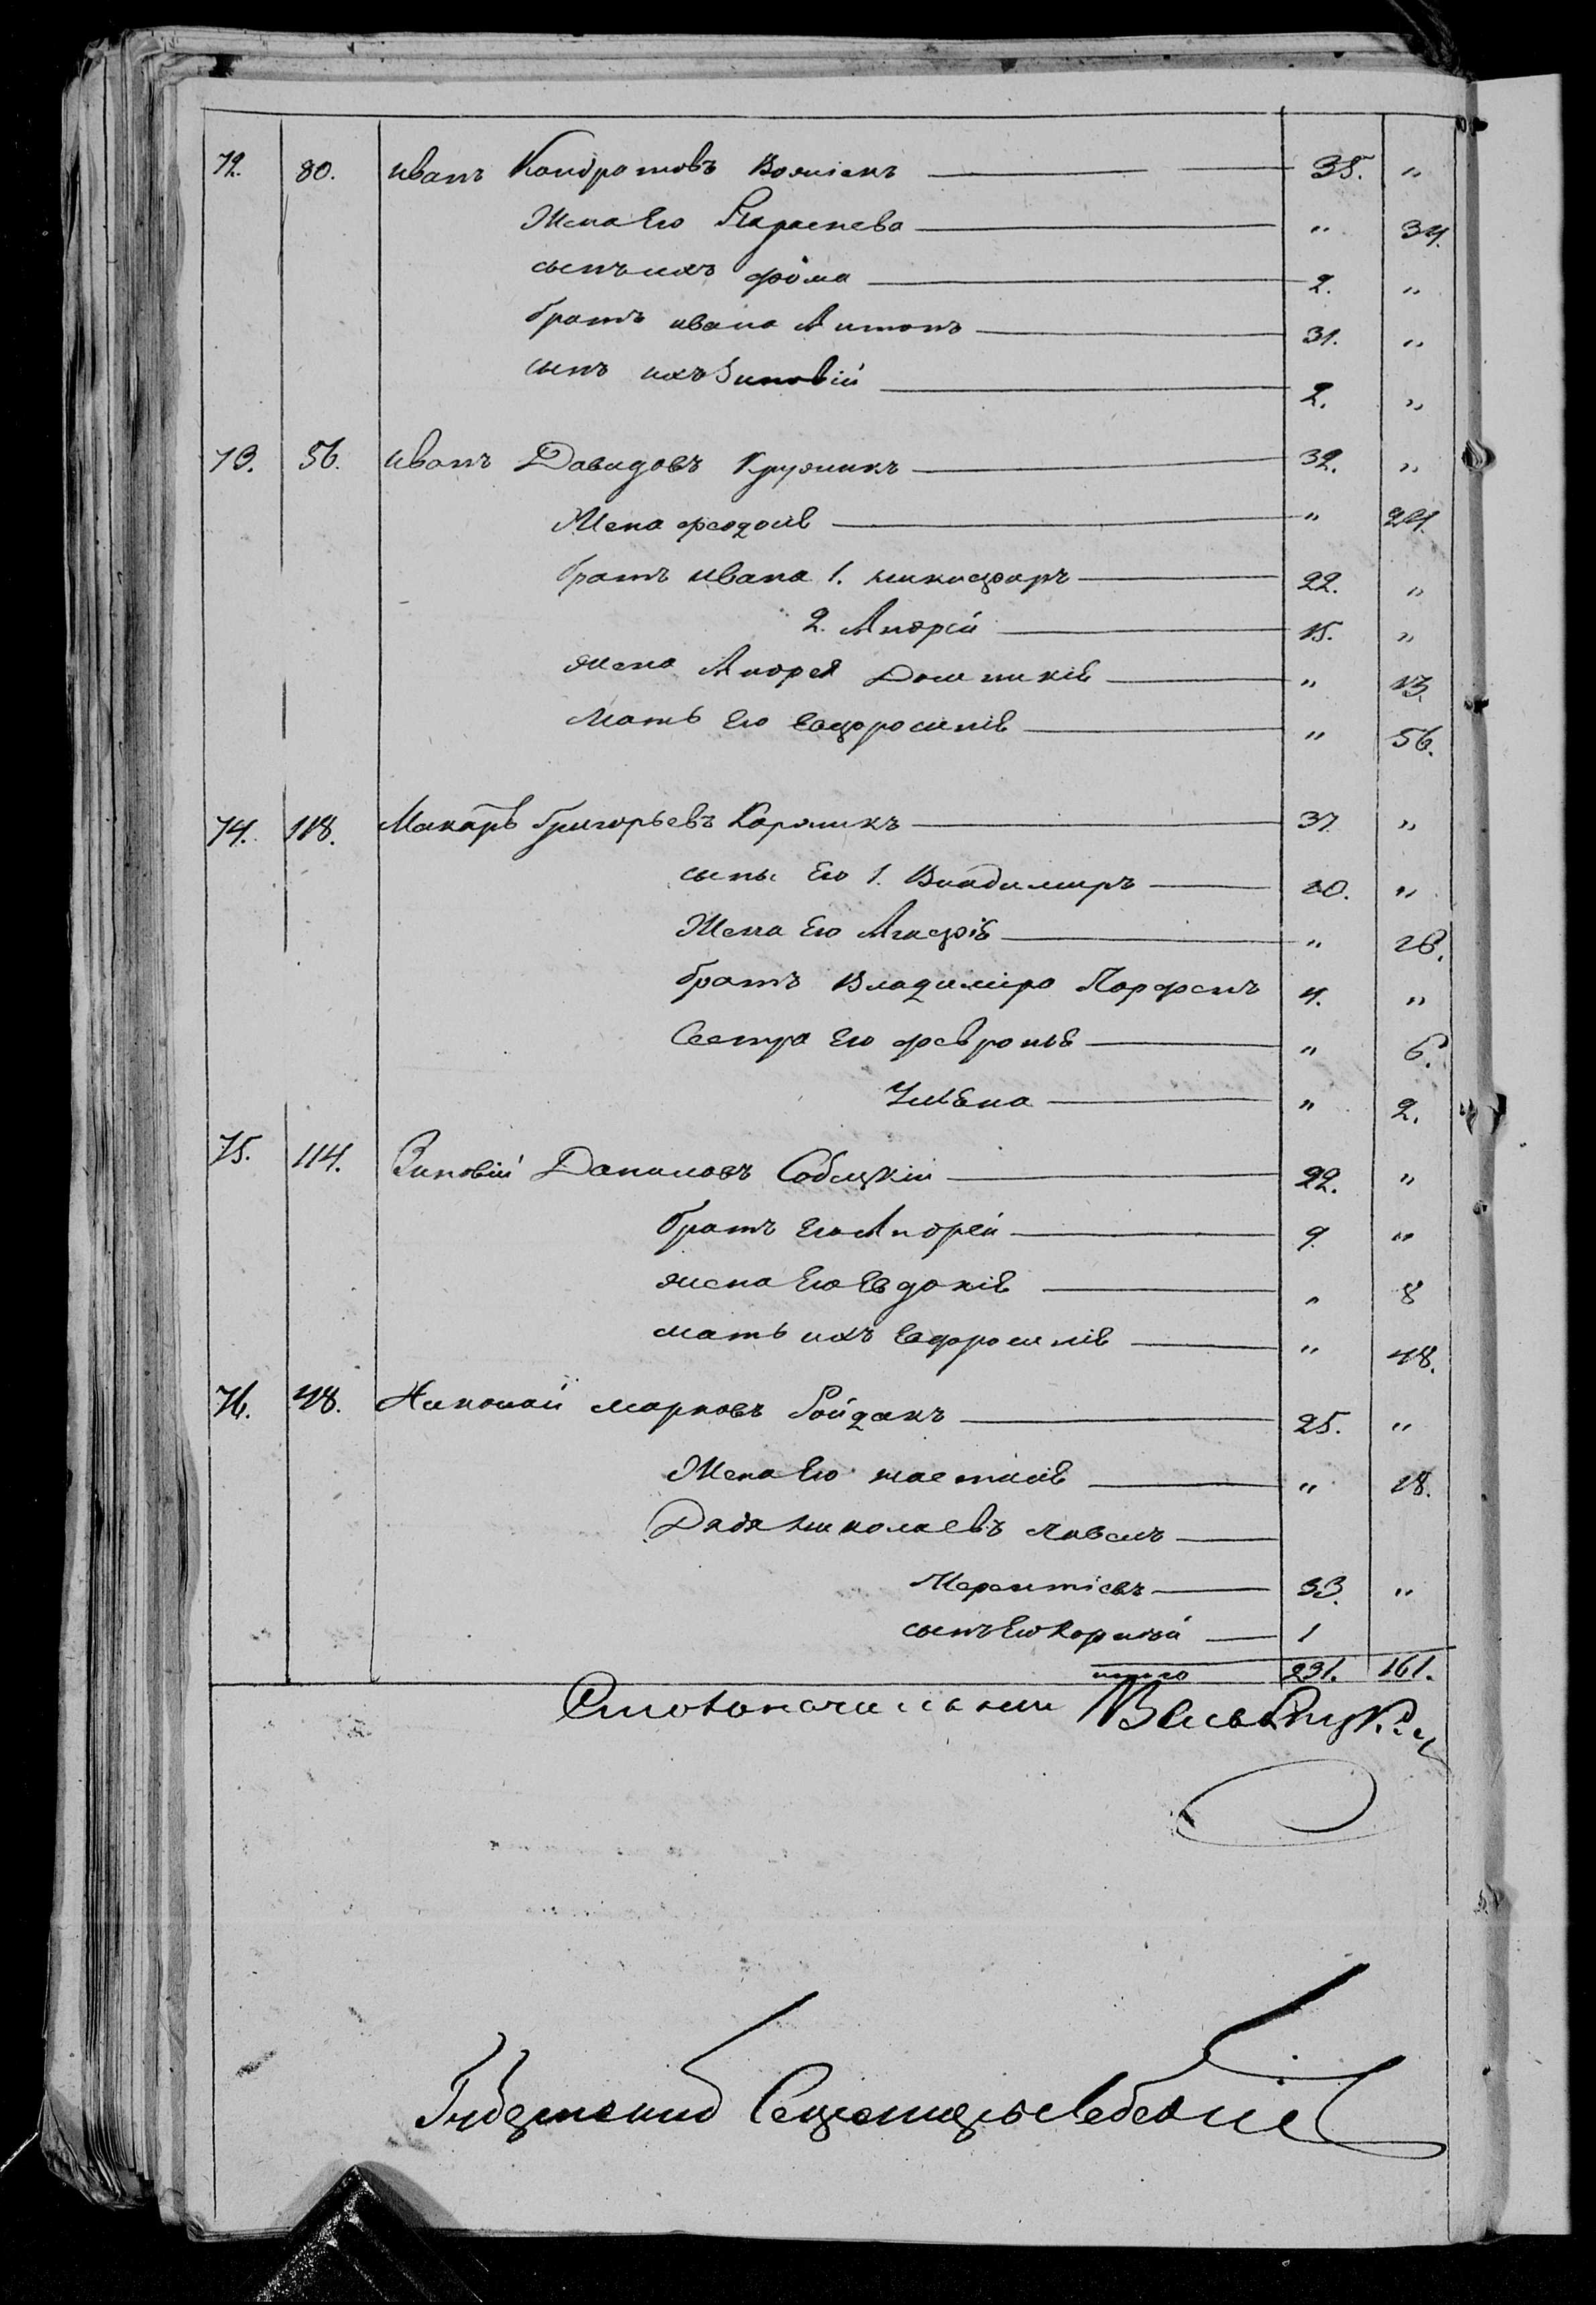 72. 80. Иванъ Кондратовъ 35. "
Жена Его Параскева " 34.
сынъ ихъ Фома 2. "
братъ Ивана Антонъ 31. "
сынъ ихъ Зиновій 2. "
73. 56. Иванъ Давидовъ 32. "
Жена Феодосія " 24.
братъ Ивана 1. Никифоръ 22. "
2. Андрей 15. "
жена Андрея Домникія " 13.
Мать Его Евфросинія " 56.
74. 118. Макаръ Григорьевъ 37. "
сыны Его 1. Владимиръ 20. "
Жена Его Агафія " 28.
братъ Владиміра Парфенъ 4. "
Сестра Его Февронія " 6.
Ульяна " 2.
75. 114. Зиновій Даниловъ Собецкій 22. "
братъ Его Андрей 9. "
жена Его Евдокія " 8
мать ихъ Евфросинія " 48.
76. 48. Николай Марковъ Гайдакъ 25. "
Жена Его Настасія " 18.
Дядя Николаевъ Павелъ
33. "
сынъ Его Корнилій 1
итого 291. 161.
Столоначальникъ
Губернскій Секретарь